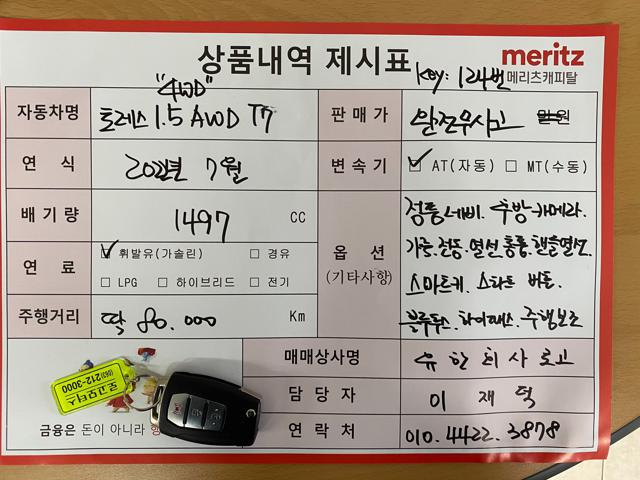 상품내역 제시표
meritz
메리츠캐피탈
Key: 124번
"4WD"
자동차명
토레스 1.5 AWD T7
판매가
완전무사고 만원
연 식
2022년 7월
변속기
AT(자동) MT(수동)
배기량
1497 CC
옵 션
(기타사항)
정품네비. 후방카메라.
가죽.전동.열선통풍.핸들열선.
스마트키. 스타트 버튼.
블루투스. 하이패스. 주행보조
연 료
휘발유(가솔린) 경유
LPG 하이브리드 전기
주행거리
딱 80.000 Km
매매상사명
유한회사 로고
담 당 자
이 재 덕
연 락 처
010.4422.3878
로고모터스
(063)212-3000
금융은 돈이 아니라